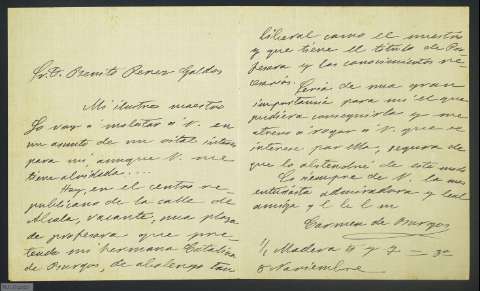 Sr. D. Benito Perez Galdos
Mi ilustre maestro
Lo voy á molestar á V. en
un asunto de un vital interes
para mi, aunque V. me
tiene olvidada....
Hay, en el centro re-
publicano de la calle de
Alcala, vacante, una plaza
de profesora que pre-
tende mi hermana Catalina
de Burgos, de abolengo tan
liberal como el nuestro
y que tiene el titulo de Pro-
fesora y los conocimientos ne-
cesarios.
Seria de una gran
importancia para mi el que
pudiera conseguirla y me
atrevo á rogar á V. que se
interese por ella, segura de
que lo obtendré de este modo
Es siempre de V. la mas
entusiasta admiradora y leal
amiga q l b l m
Carmen de Burgos
Madera
8 Noviembre